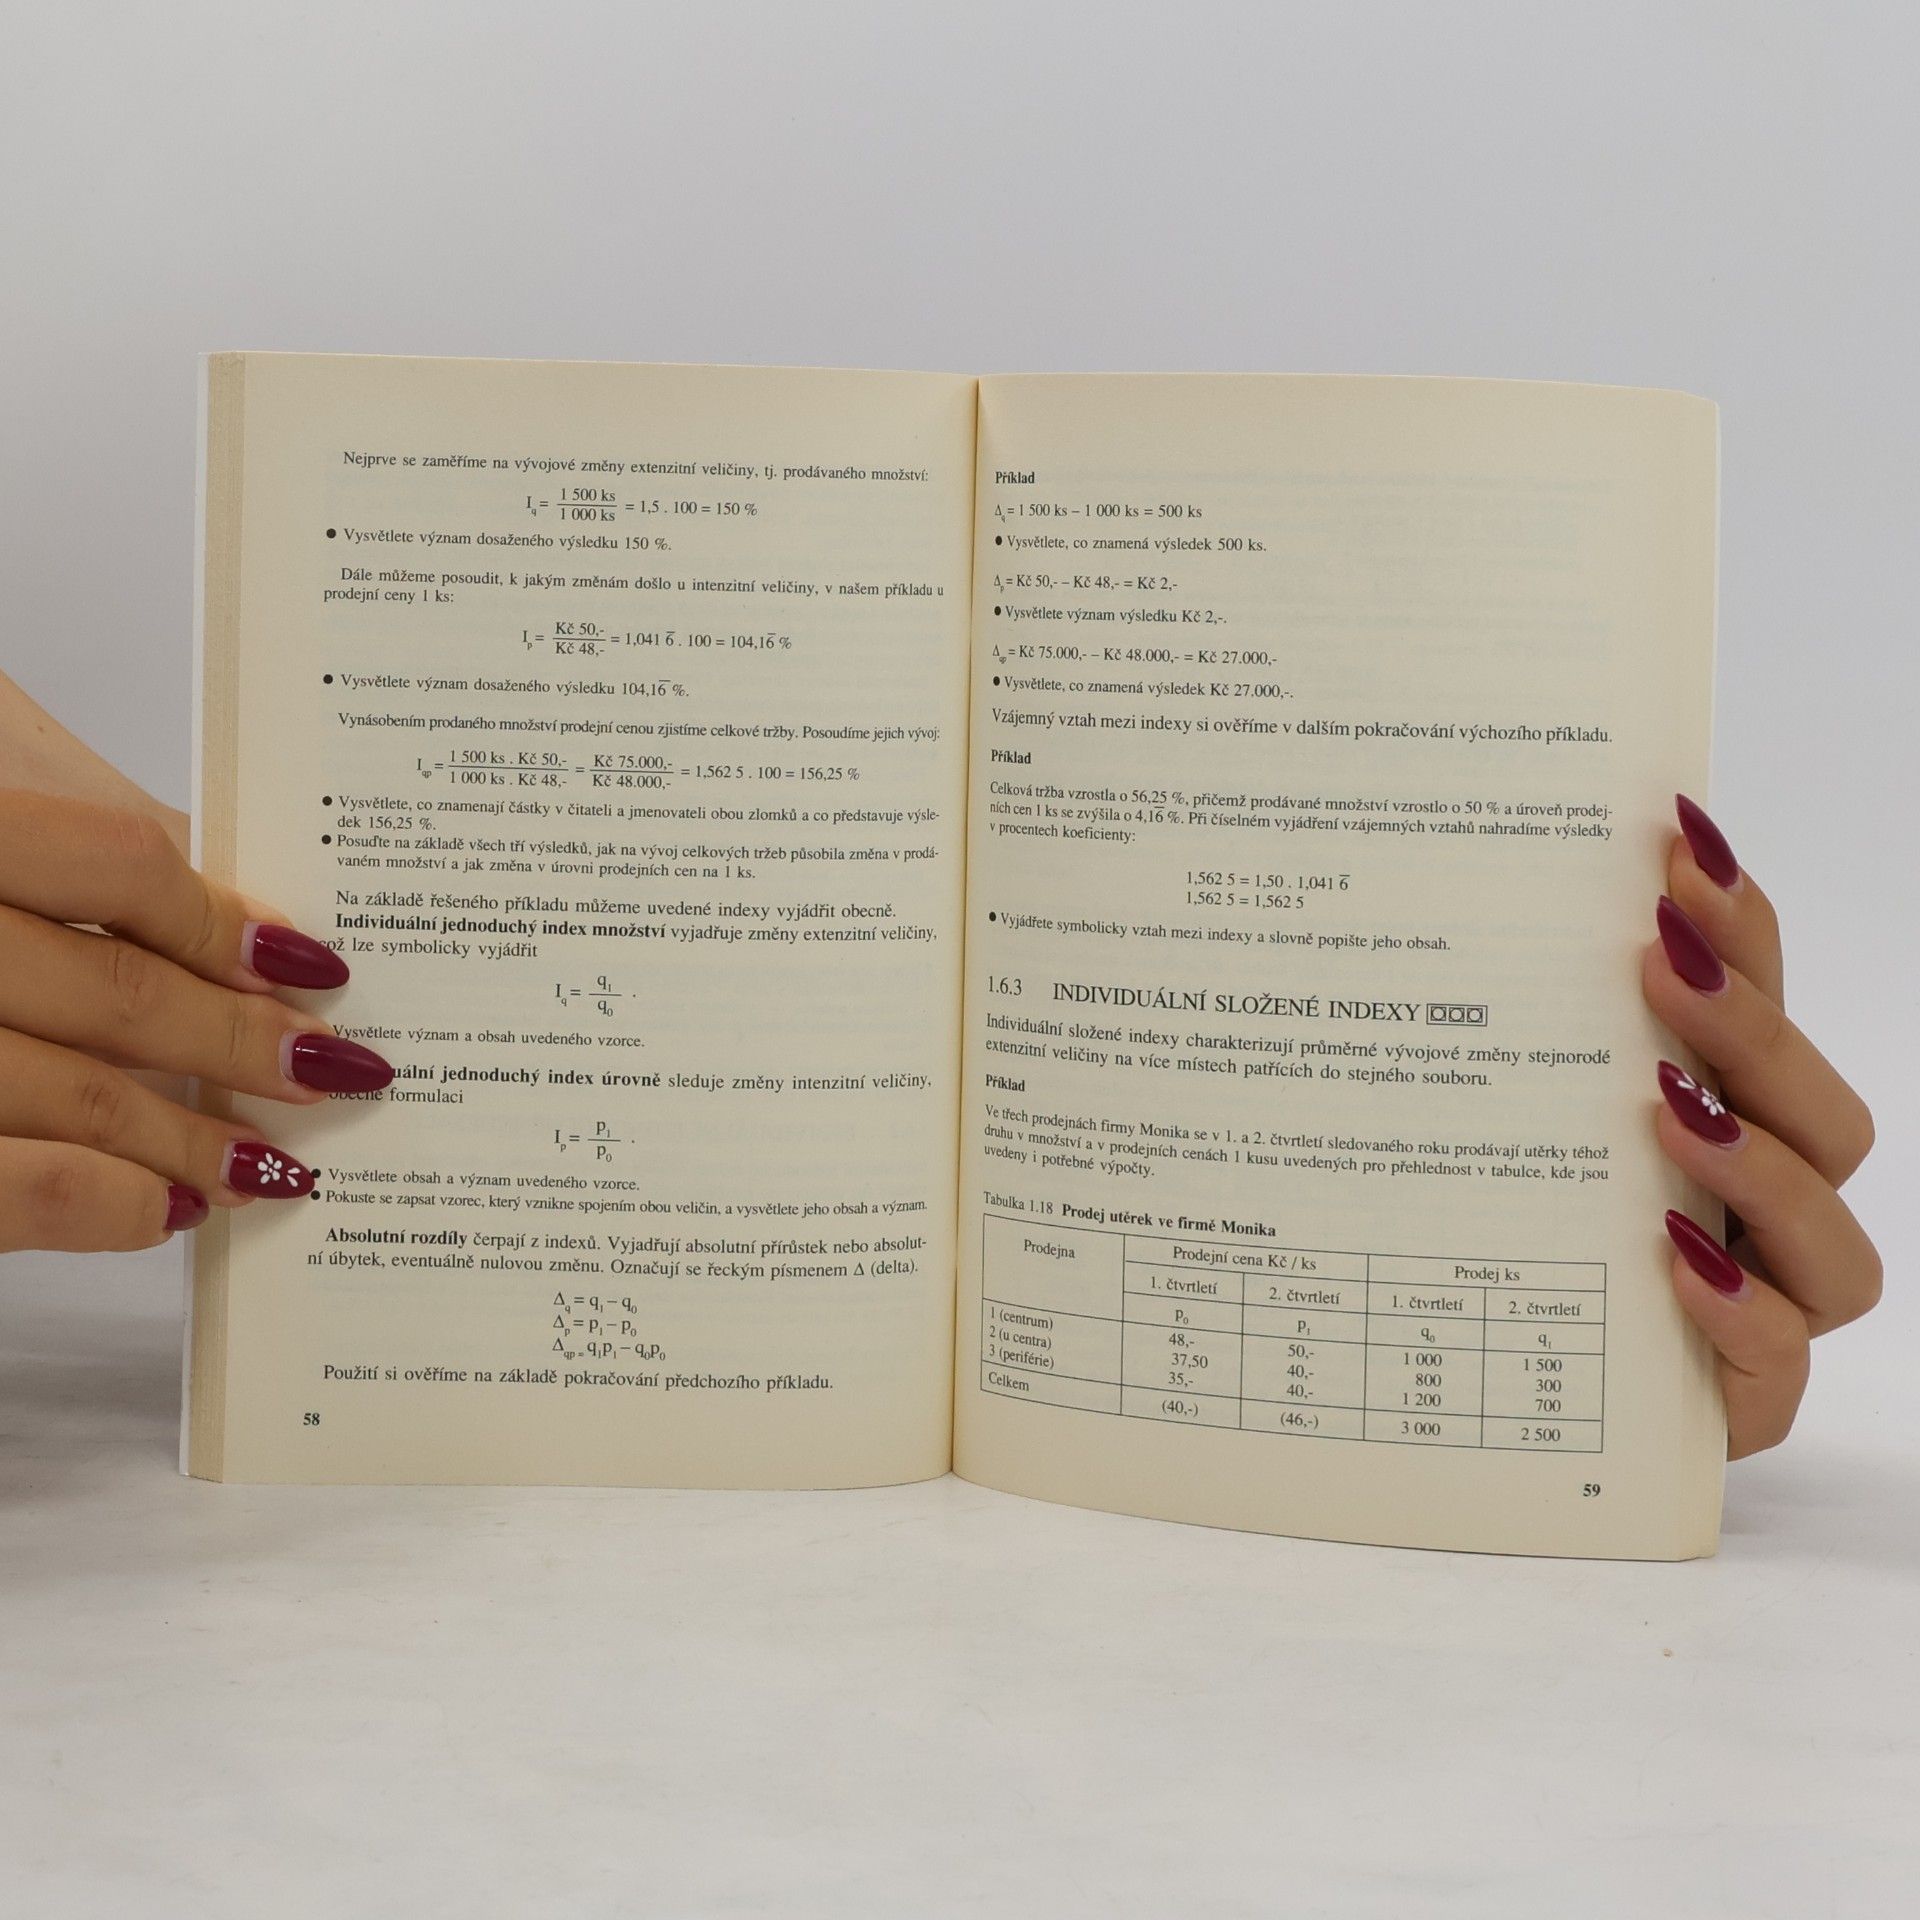 Nejprve se zaměříme na vývojové změny extenzitní veličiny, tj. prodávaného množství:
I_q = 1 500 ks / 1 000 ks = 1,5 . 100 = 150 %
● Vysvětlete význam dosaženého výsledku 150 %.
Dále můžeme posoudit, k jakým změnám došlo u intenzitní veličiny, v našem příkladu u
prodejní ceny 1 ks:
I_p = Kč 50,- / Kč 48,- = 1,041 6̅ . 100 = 104,16̅ %
● Vysvětlete význam dosaženého výsledku 104,16̅ %.
Vynásobením prodaného množství prodejní cenou zjistíme celkové tržby. Posoudíme jejich vývoj:
I_qp = 1 500 ks . Kč 50,- / 1 000 ks . Kč 48,- = Kč 75.000,- / Kč 48.000,- = 1,562 5 . 100 = 156,25 %
● Vysvětlete, co znamenají částky v čitateli a jmenovateli obou zlomků a co představuje výsle-
dek 156,25 %.
● Posuďte na základě všech tří výsledků, jak na vývoj celkových tržeb působila změna v prodá-
vaném množství a jak změna v úrovni prodejních cen na 1 ks.
Na základě řešeného příkladu můžeme uvedené indexy vyjádřit obecně.
Individuální jednoduchý index množství vyjadřuje změny extenzitní veličiny,
což lze symbolicky vyjádřit
I_q = q₁ / q₀ .
Vysvětlete význam a obsah uvedeného vzorce.
uální jednoduchý index úrovně sleduje změny intenzitní veličiny,
obecně formulaci
I_p = p₁ / p₀ .
● Vysvětlete obsah a význam uvedeného vzorce.
● Pokuste se zapsat vzorec, který vznikne spojením obou veličin, a vysvětlete jeho obsah a význam.
Absolutní rozdíly čerpají z indexů. Vyjadřují absolutní přírůstek nebo absolut-
ní úbytek, eventuálně nulovou změnu. Označují se řeckým písmenem Δ (delta).
Δ_q = q₁ – q₀
Δ_p = p₁ – p₀
Δ_qp = q₁p₁ – q₀p₀
Použití si ověříme na základě pokračování předchozího příkladu.
58
Příklad
Δ_q = 1 500 ks – 1 000 ks = 500 ks
● Vysvětlete, co znamená výsledek 500 ks.
Δ_p = Kč 50,- – Kč 48,- = Kč 2,-
● Vysvětlete význam výsledku Kč 2,-.
Δ_qp = Kč 75.000,- – Kč 48.000,- = Kč 27.000,-
● Vysvětlete, co znamená výsledek Kč 27.000,-.
Vzájemný vztah mezi indexy si ověříme v dalším pokračování výchozího příkladu.
Příklad
Celková tržba vzrostla o 56,25 %, přičemž prodávané množství vzrostlo o 50 % a úroveň prodej-
ních cen 1 ks se zvýšila o 4,16̅ %. Při číselném vyjádření vzájemných vztahů nahradíme výsledky
v procentech koeficienty:
1,562 5 = 1,50 . 1,041 6̅
1,562 5 = 1,562 5
● Vyjádřete symbolicky vztah mezi indexy a slovně popište jeho obsah.
1.6.3 INDIVIDUÁLNÍ SLOŽENÉ INDEXY
Individuální složené indexy charakterizují průměrné vývojové změny stejnorodé
extenzitní veličiny na více místech patřících do stejného souboru.
Příklad
Ve třech prodejnách firmy Monika se v 1. a 2. čtvrtletí sledovaného roku prodávají utěrky téhož
druhu v množství a v prodejních cenách 1 kusu uvedených pro přehlednost v tabulce, kde jsou
uvedeny i potřebné výpočty.
Tabulka 1.18 Prodej utěrek ve firmě Monika
Prodejna Prodejní cena Kč / ks Prodej ks
1. čtvrtletí 2. čtvrtletí 1. čtvrtletí 2. čtvrtletí
p₀ p₁ q₀ q₁
1 (centrum) 48,- 50,- 1 000 1 500
2 (u centra) 37,50 40,- 800 300
3 (periférie) 35,- 40,- 1 200 700
Celkem (40,-) (46,-) 3 000 2 500
59